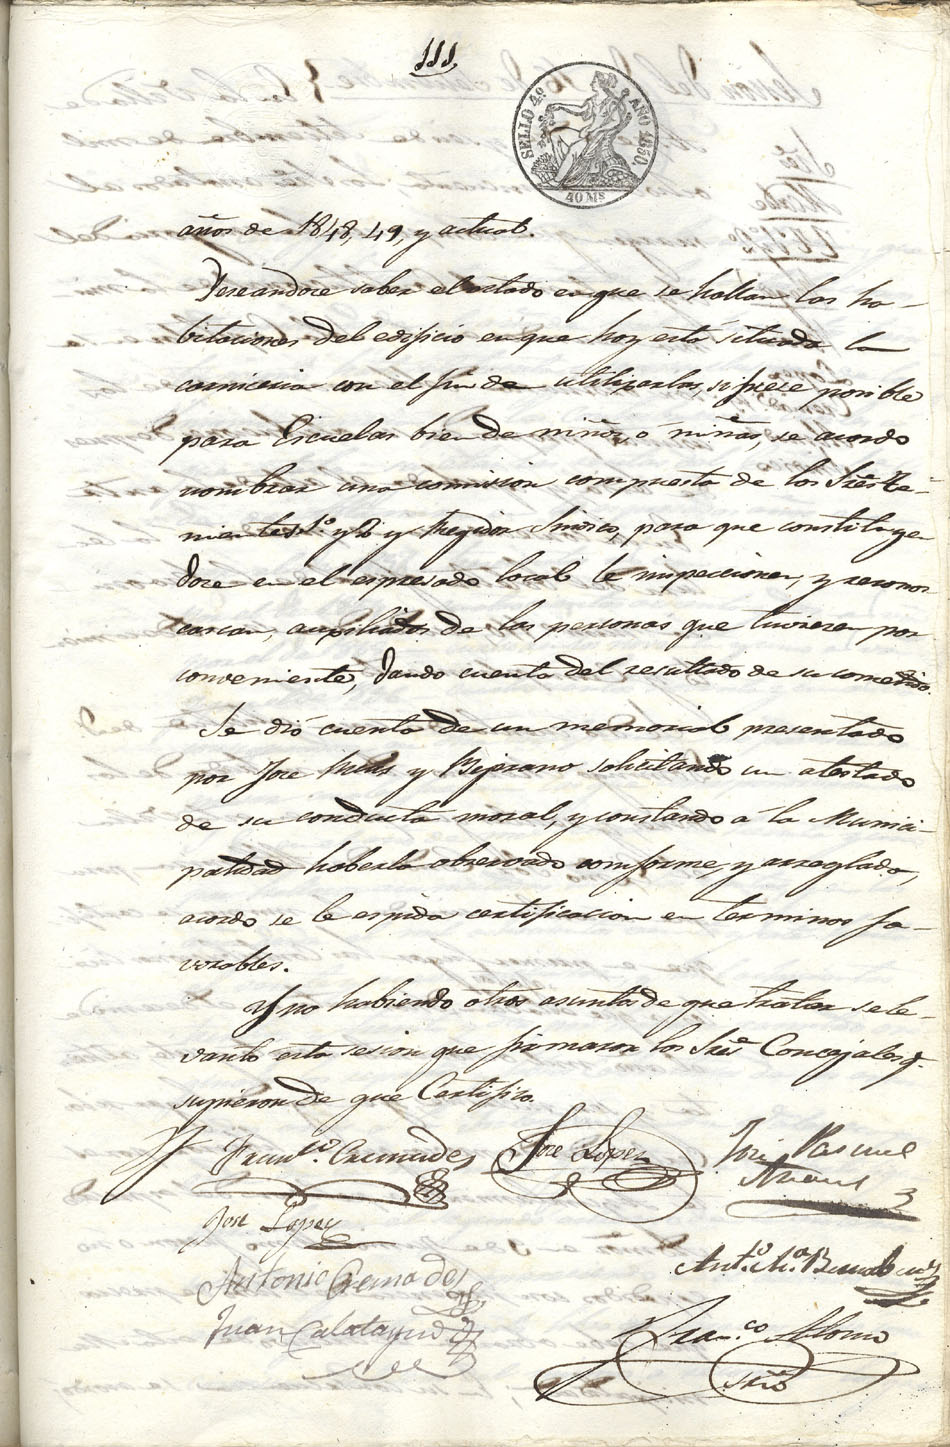 111
SELLO 4º. AÑO 1850.
40 Ms
años de 1848, 49, y actual.
Deseandose saber el estado en que se hallan las ha-
bitaciones del edificio en que hoy está situada la
carniceria con el fin de utilizarlas, si fuese posible
para Escuelas bien de niños, ó niñas, se acordo
nombrar una comision compuesta de los Sres. Te-
nientes 1º. y 2º y Regidor Sindico, para que constituyen
dose en el espresado local le inspeccionen, y reconoz
can, aupiliados de las personas que tuvieren por
conveniente, dando cuenta del resultado de su cometido.
Se dió cuenta de un memorial presentado
por Jose y solicitando un atestado
de su conducta moral, y constando á la Munici-
palidad haberla observado comforme, y arreglada,
acordo se le espida certificacion en terminos fa-
vorables.
Y no habiendo otros asuntos de que tratar se le-
vantó esta sesion que firmaron los Sres. Concejales q.
supieron de que Certifico.
Franco. Cremades
Jose Lopez
José Pascual
Jose Lopez
Antonio Cremades
Antº. Mª. Bernabeu
Juan Calatayud
Franco
Srio